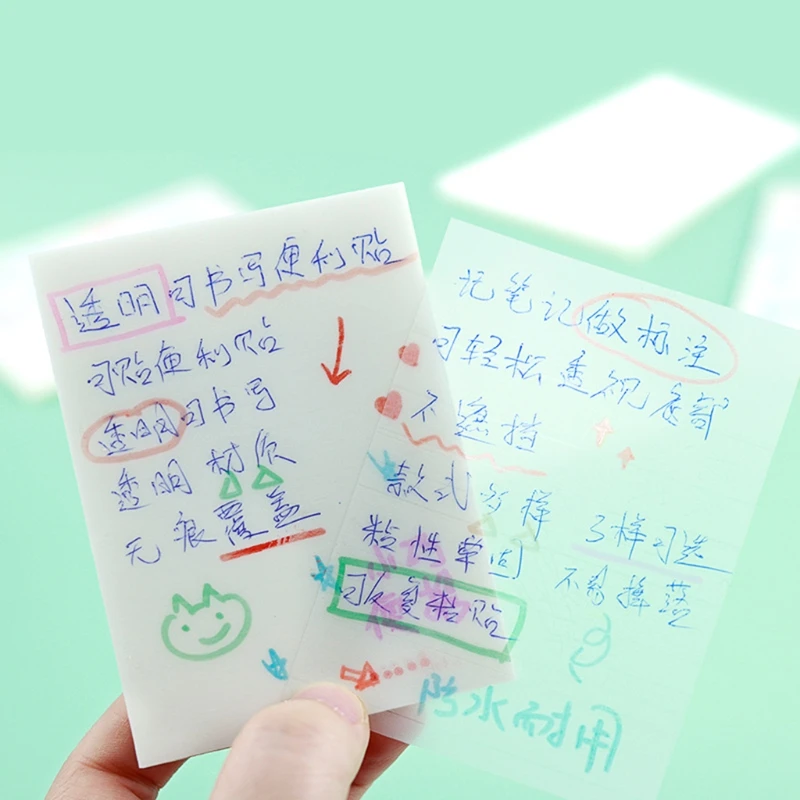 透明可书写便利贴
可贴便利贴
透明可书写
透明材质
无痕覆盖
记笔记做标注
可轻松透视底部
不遮挡
款式多样 3样可选
粘性牢固 不易掉落
可反复粘贴
防水耐用